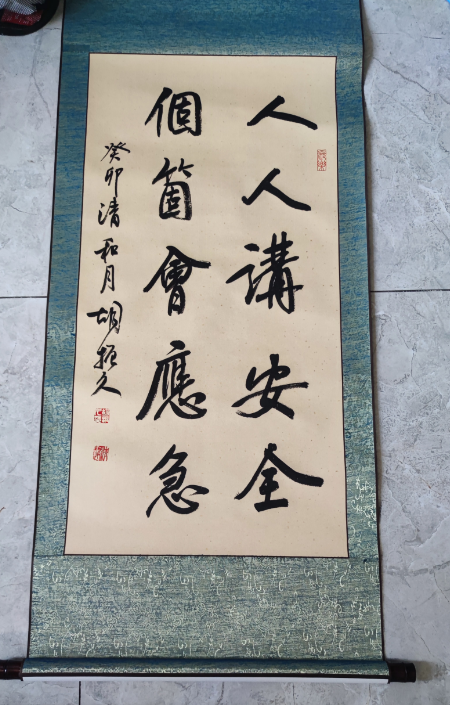 人人講安全
個箇會應急
癸卯清和月胡振久